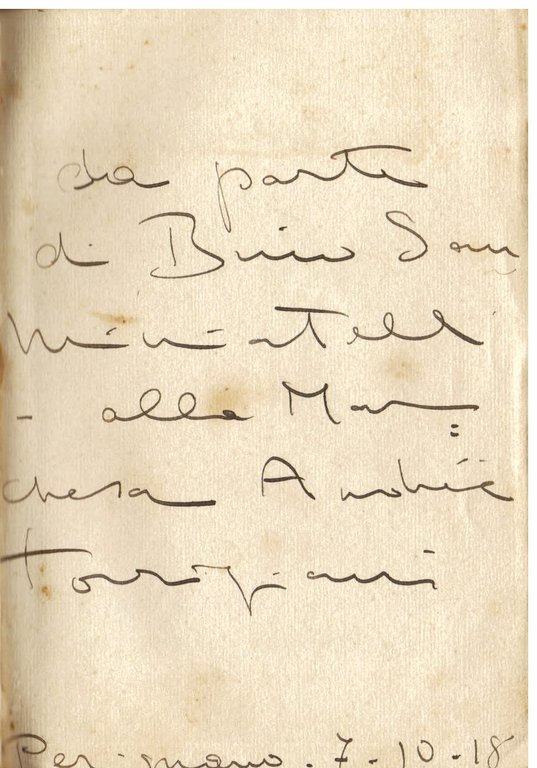 da parte
di Bino San
Miniatelli
- alla Mar=
chesa Andrée
Torrigiani
Per-mano. 7-10-18